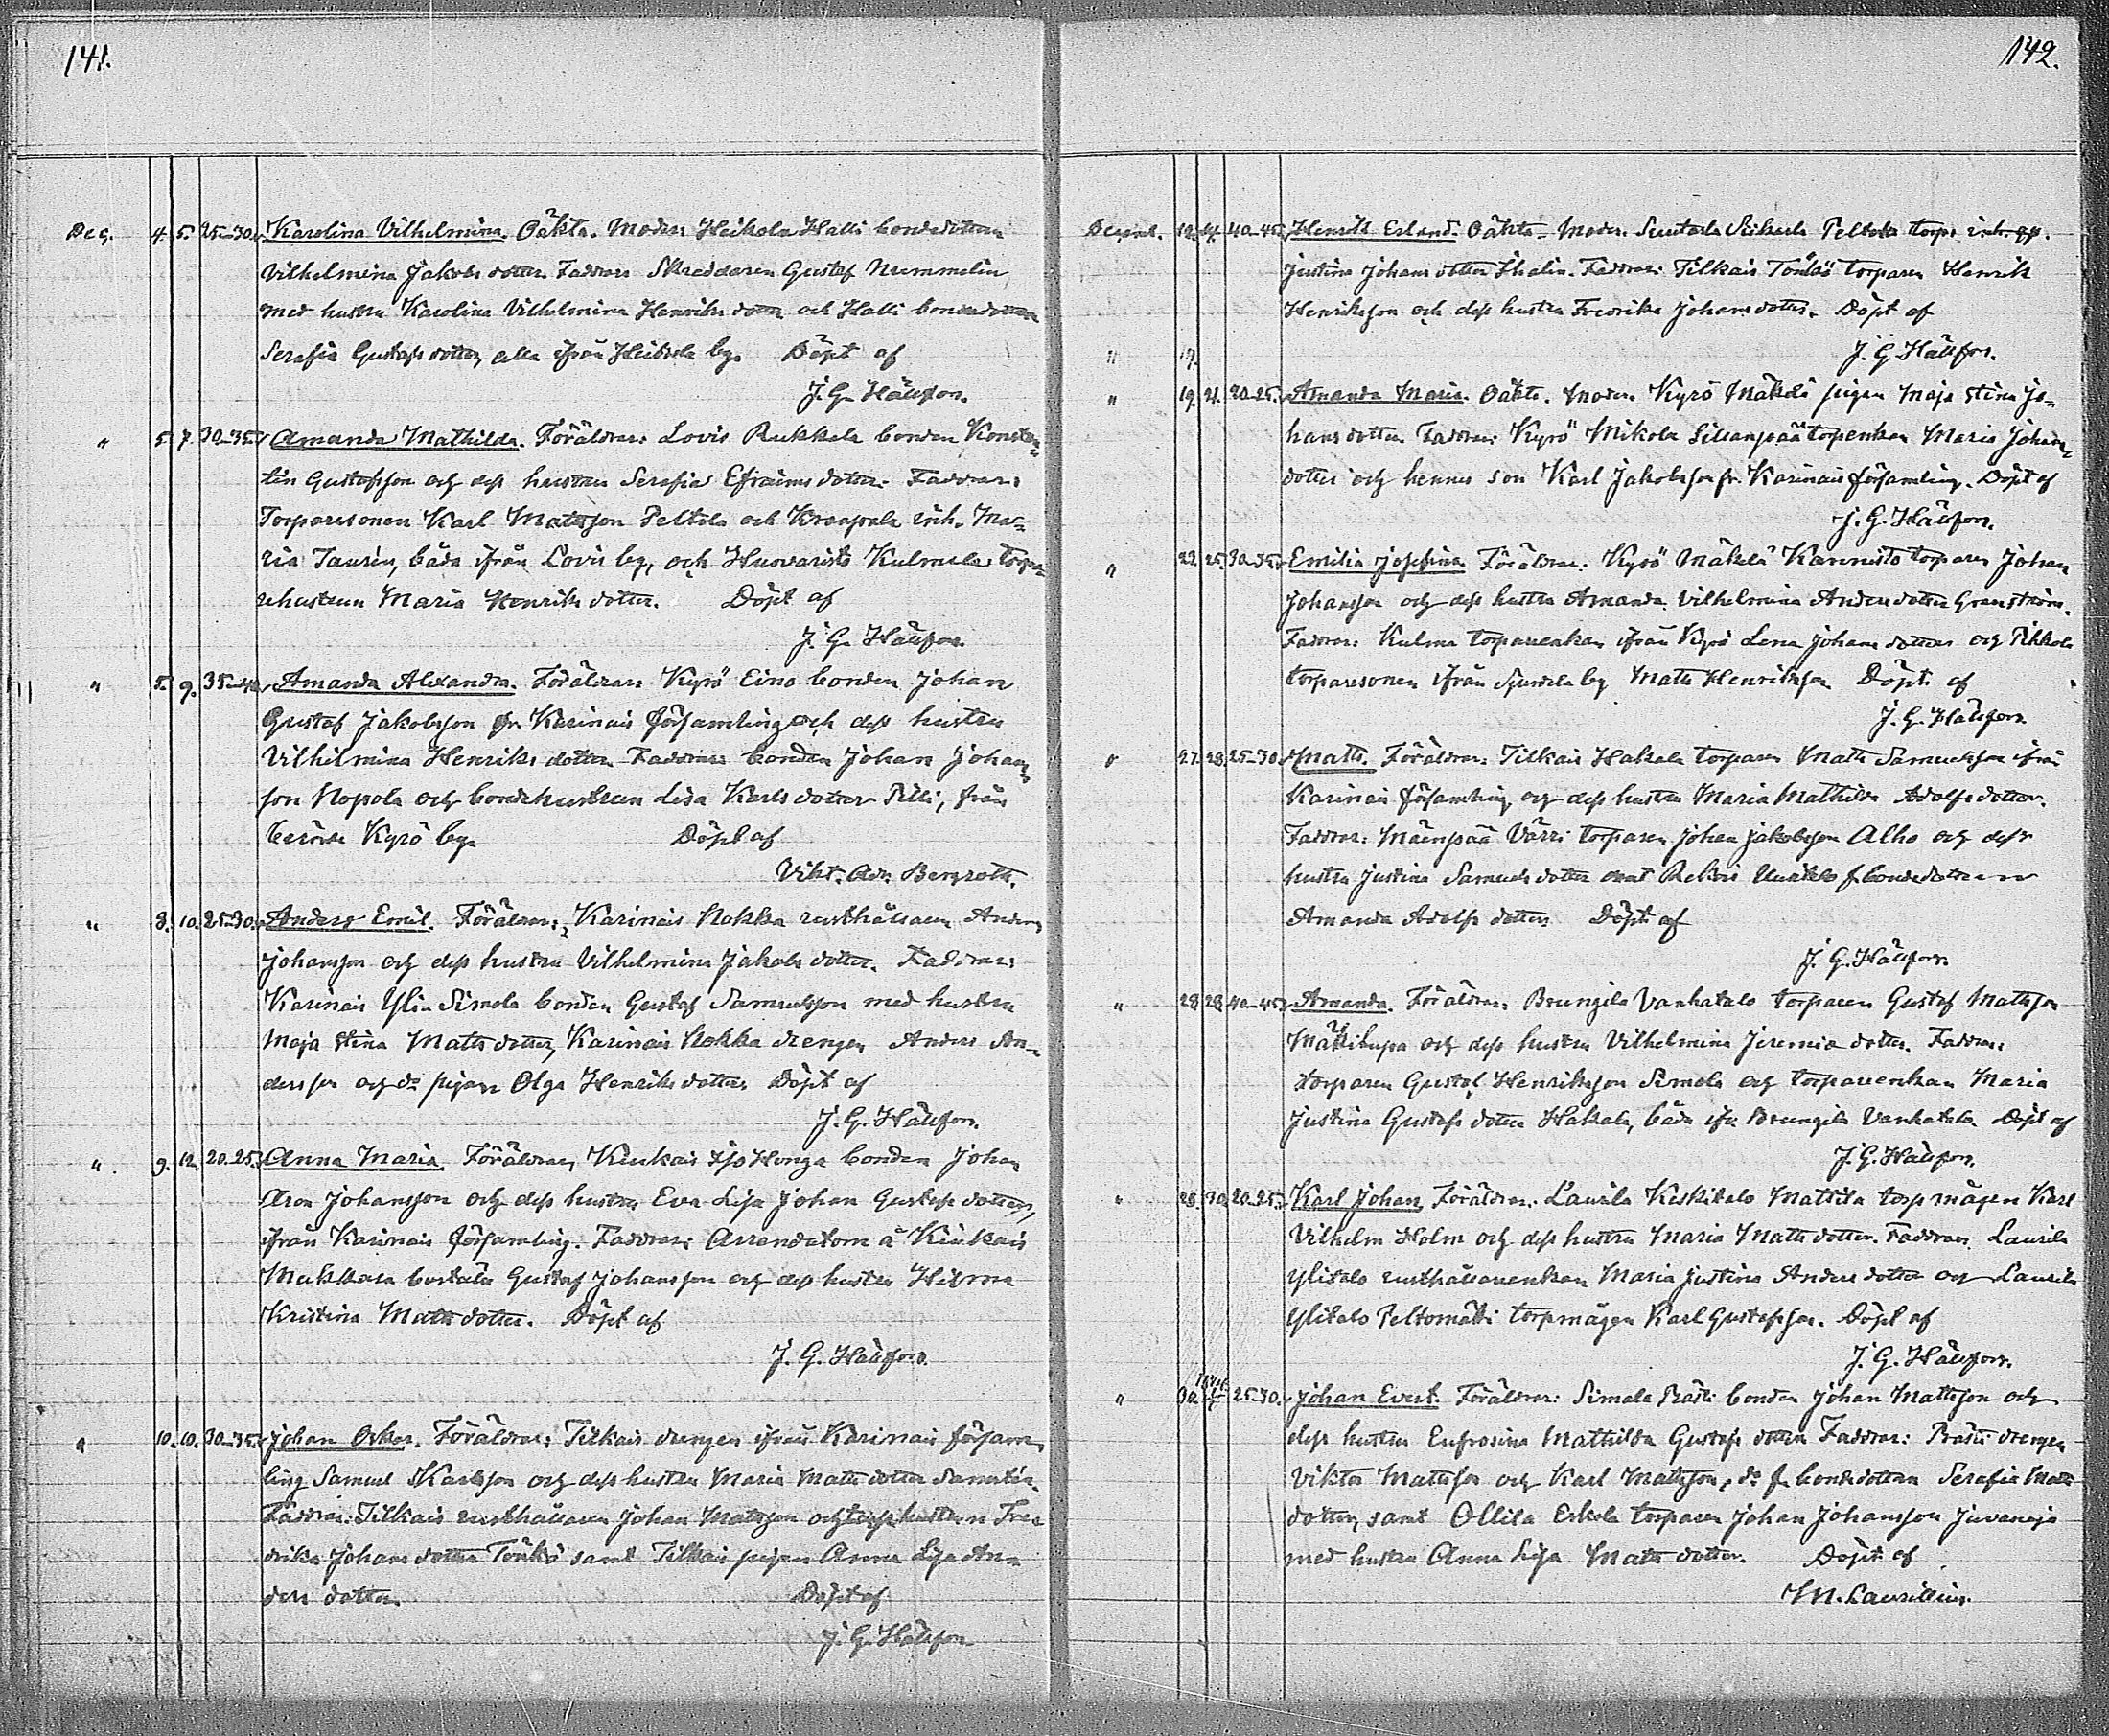 141.
Dec. 4. 5. 25-30. Karolina Vilhelmina. Oäkta. Moder: Heikola Halli bondedottren
Vilhelmina Jakobs dotter. Faddrar: Skräddaren Gustaf Nummelin
med hustru Karolina Vilhelmina Henriks dotter och Halli bondedottren
Serafia Gustafs dotter, alla ifrån Heikola by. Döpt af
J. G. Hällfors.
" 5. 7. 30-35. Amanda Mathilda. Föräldrar: Lovis Rukkala bonden Konstan-
tin Gustafsson och dess hustru Serafia Efraims dotter. Faddrar:
Torparesonen Karl Mattsson Peltola och inh. Ma-
ria Taurén, båda ifrån Lovis by, och Huovaristo Kulmala torpa-
rehustrun Maria Henriks dotter. Döpt af
J. G. Hällfors.
" 5. 9. 35-40. Amanda Alexandra. Föräldrar: Kyrö Eino bonden Johan
Gustaf Jakobsson fr. Karinais församling och dess hustru
Vilhelmina Henriks dotter. Faddrar: bonden Johan Johans-
son Nopola och bondehustrun Lisa Karls dotter Pilli, från
berörde Kyrö by. Döpt af
Vikt. Adr. Bergroth.
" 8. 10. 25-30. Anders Emil. Föräldrar: Karinais Nokka rusthållaren Anders
Johansson och dess hustru Vilhelmina Jakobs dotter. Faddrar:
Karinais Yli-Simola bonden Gustaf Samuelsson med hustru
Maja Stina Matts dotter, Karinais Nokka drengen Anders An-
dersson och d:o pigan Olga Henriks dotter. Döpt af
J. G. Hällfors.
" 9. 12. 20-25. Anna Maria. Föräldrar: Kiukais Iso Honga bonden Johan
Aron Johansson och dess hustru Eva Lisa Johan Gustafs dotter,
ifrån Karinais församling. Faddrar: Arrendatorn å Kiukais
Makkara bostälä Gustaf Johansson och dess hustru
Kristina Matts dotter. Döpt af
J. G. Hällfors.
" 10. 10. 30-35. Johan Oskar. Föräldrar: Tilkais drengen ifrån Karinais försam-
ling Samuel Karlsson och dess hustru Maria Matts dotter
Faddrar: Tilkais rusthållaren Johan Mattsson och torp. hustrun Fre-
drika Johans dotter Tönkö samt Tilkais pigan Anna Lisa An-
ders dotter. Döpt af
J. G. Hällfors.
142.
Decemb. 40-45. Henrik Erland. Oäkta. Moder: Peltola torps inh.
Justina Johans dotter Thalin. Faddrar: Tilkais Tönkö torparen Henrik
Henriksson och dess hustru Fredrika Johans dotter. Döpt af
" 19. J. G. Hällfors.
" 19. 21. 20-25. Amanda Maria. Oäkta. Moder: Kyrö Mäkelä pigan Maja Stina Jo-
hans dotter. Faddrar: Kyrö Mikola Sillanpää torpenkan Maria Johans
dotter och hennes son Karl Jakobsson fr. Karinais församling. Döpt af
J. G. Hällfors.
" 23. 25. 30-35. Emilia Josefina. Föräldrar: Kyrö Mäkelä Kannisto torparen Johan
Johansson och dess hustru Amanda Vilhelmina Anders dotter Granström.
Faddrar: Kulma torpareenkan ifrån Kyrö Lena Johans dotter och Pikkola
torparesonen ifrån by Matts Henriksson. Döpt af
J. G. Hällfors.
" 27. 28. 25-30. Matts. Föräldrar: Tilkais Hakala torparen Matts Samuelsson ifrån
Karinais församling och dess hustru Maria Mathilda Adolfs dotter.
Faddrar: Mäenpää Värri torparen Johan Jakobsson Alho och dess
hustru Justina Samuels dotter samt f. bondedottren
Amanda Adolfs dotter. Döpt af
J. G. Hällfors.
" 28. 28. 40-45. Amanda. Föräldrar: Brungila Vanhatalo torparen Gustaf Mattsson
och dess hustru Vilhelmina Jeremie dotter. Faddrar:
torparen Gustaf Henriksson Simola och torpareenkan Maria
Justina Gustafs dotter Hakala, båda ifr. Brungila Vanhatalo. Döpt af
J. G. Hällfors.
" 28. 30. 20-25. Karl Johan. Föräldrar: Laurila Keskitalo Mattila torp mågen Karl
Vilhelm Holm och dess hustru Maria Matts dotter. Faddrar: Laurila
Ylitalo rusthållareenkan Maria Justina Anders dotter och Laurila
Ylitalo Peltomäki torpmågen Karl Gustafsson. Döpt af
J. G. Hällfors.
" 30. 25-30. Johan Evert. Föräldrar: Simala Präsi bonden Johan Mattsson och
dess hustru Eufrosina Mathilda Gustafs dotter. Faddrar: Präsi drengen
Viktor Mattsson och Karl Mattsson, d:o f. bondedottren Serafia Matts
dotter, samt Ollila Erkola torparen Johan Johansson Juvanoja
med hustru Anna Lisa Matts dotter. Döpt af
Laurellius.